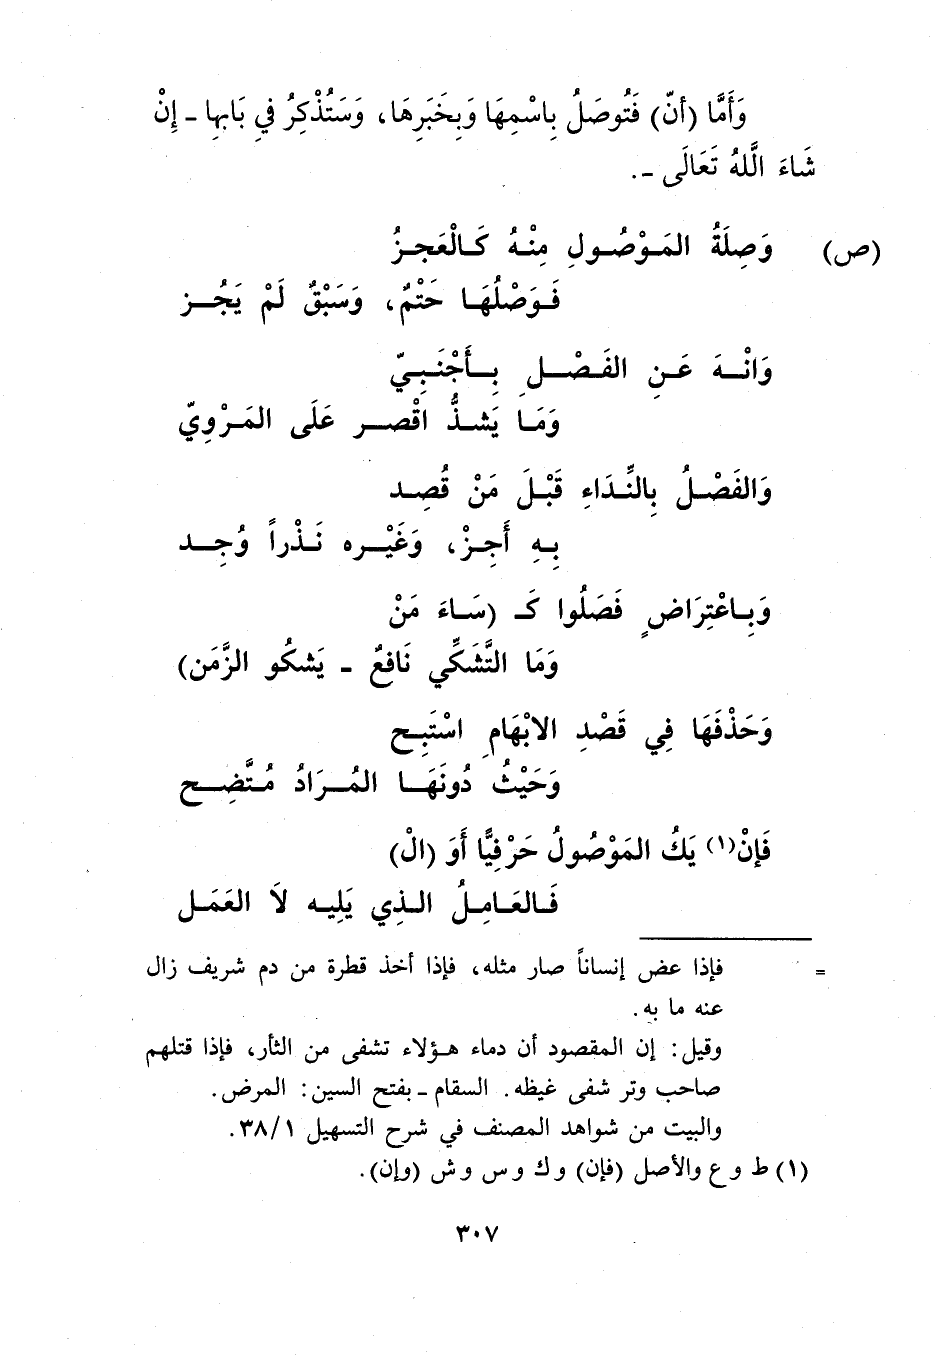 وَأَمَّا (أنّ) فَتُوصَلُ بِاسْمِهَا وَبِخَبَرِهَا، وَسَتُذْكِرُ فِي بَابِها ـ إِنْ
شَاءَ اللَّهُ تَعَالَى ـ.
(ص) وَصِلَةُ المَوْصُولِ مِنْهُ كَالْعَجزُ
فَوَصْلُهَا حَتْمٌ، وَسَبْقٌ لَمْ يَجُز
وَانْهَ عَنِ الفَصْلِ بِأَجْنَبِيّ
وَمَا يَشذُّ اقْصر عَلَى المَرْوِيّ
وَالفَصْلُ بِالنِّدَاءِ قَبْلَ مَنْ قُصِد
بِهِ أَجِزْ، وَغَيْره نَذْراً وُجِد
وَبِاعْتِرَاضٍ فَصَلُوا كَـ (سَاءَ مَنْ
وَمَا التَّشَكِّي نَافِعٌ ـ يَشكُو الزَّمَن)
وَحَذْفَهَا فِي قَصْدِ الابْهَامِ اسْتَبِح
وَحَيْثُ دُونَهَا المُرَادُ مُتَّضِح
فَإِنْ(١) يَكُ المَوْصُولُ حَرْفِيًّا أَوَ (الْ)
فَالعَامِلُ الذِي يَلِيه لاَ العَمَل
= فإذا عض إنساناً صار مثله، فإذا أخذ قطرة من دم شريف زال
عنه ما به.
وقيل: إن المقصود أن دماء هؤلاء تشفى من الثأر، فإذا قتلهم
صاحب وتر شفى غيظه. السقام ـ بفتح السين: المرض.
والبيت من شواهد المصنف في شرح التسهيل ٣٨/١.
(١) ط و ع والأصل (فإن) و ك و س و ش (وإن).
٣٠٧